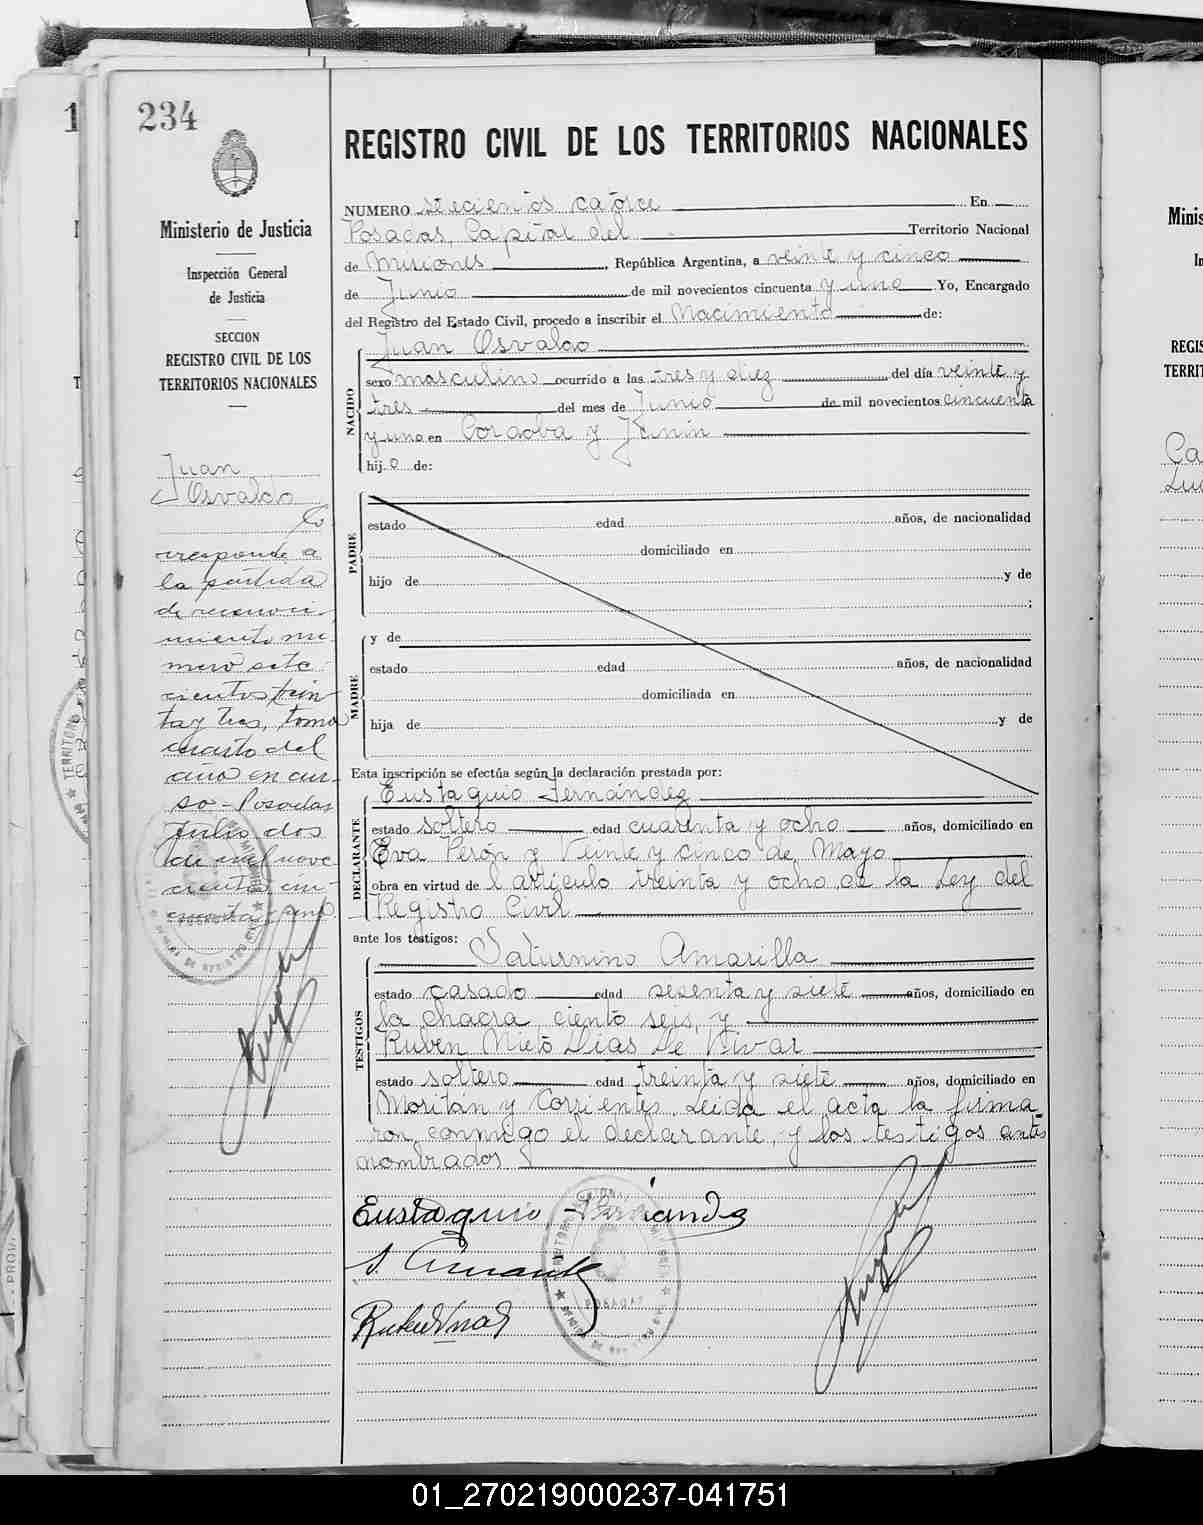 234
Ministerio de Justicia
Inspección General
de Justicia
SECCION
REGISTRO CIVIL DE LOS
TERRITORIOS NACIONALES
Juan
Osvaldo
Co
rresponde a
la partida
de reconoci
miento nú
mero sete
cientos trein
ta y tres, tomo
cuarto del
año en cur-
so - Posadas
Julio dos
de mil nove
cientos cin-
cuenta y uno
REGISTRO CIVIL DE LOS TERRITORIOS NACIONALES
NUMERO setecientos catorce En
Posadas, Capital del Territorio Nacional
de Misiones, República Argentina, a veinte y cinco
de Junio de mil novecientos cincuenta y uno Yo, Encargado
del Registro del Estado Civil, procedo a inscribir el Nacimiento de:
NACIDO
Juan Osvaldo
sexo masculino ocurrido a las tres y diez del día veinte y
tres del mes de Junio de mil novecientos cincuenta
y uno en Cordoba y Junin
hijo de:
PADRE
estado edad años, de nacionalidad
domiciliado en
hijo de y de
;
MADRE
y de
estado edad años, de nacionalidad
domiciliada en
hija de y de
Esta inscripción se efectúa según la declaración prestada por:
DECLARANTE
Eustaquio Fernández
estado soltero edad cuarenta y ocho años, domiciliado en
Eva Perón y Veinte y cinco de Mayo
obra en virtud del artículo treinta y ocho de la Ley del
Registro Civil
ante los testigos:
TESTIGOS
Saturnino Amarilla
estado casado edad sesenta y siete años, domiciliado en
la chacra ciento seis, y
Ruben Nieto Dias De Vivar
estado soltero edad treinta y siete años, domiciliado en
Moritán y Corrientes. Leida el acta la firma
ron conmigo el declarante, y los testigos antes
nombrados
Eustaquio Fernandez
POSADAS
01_270219000237-041751